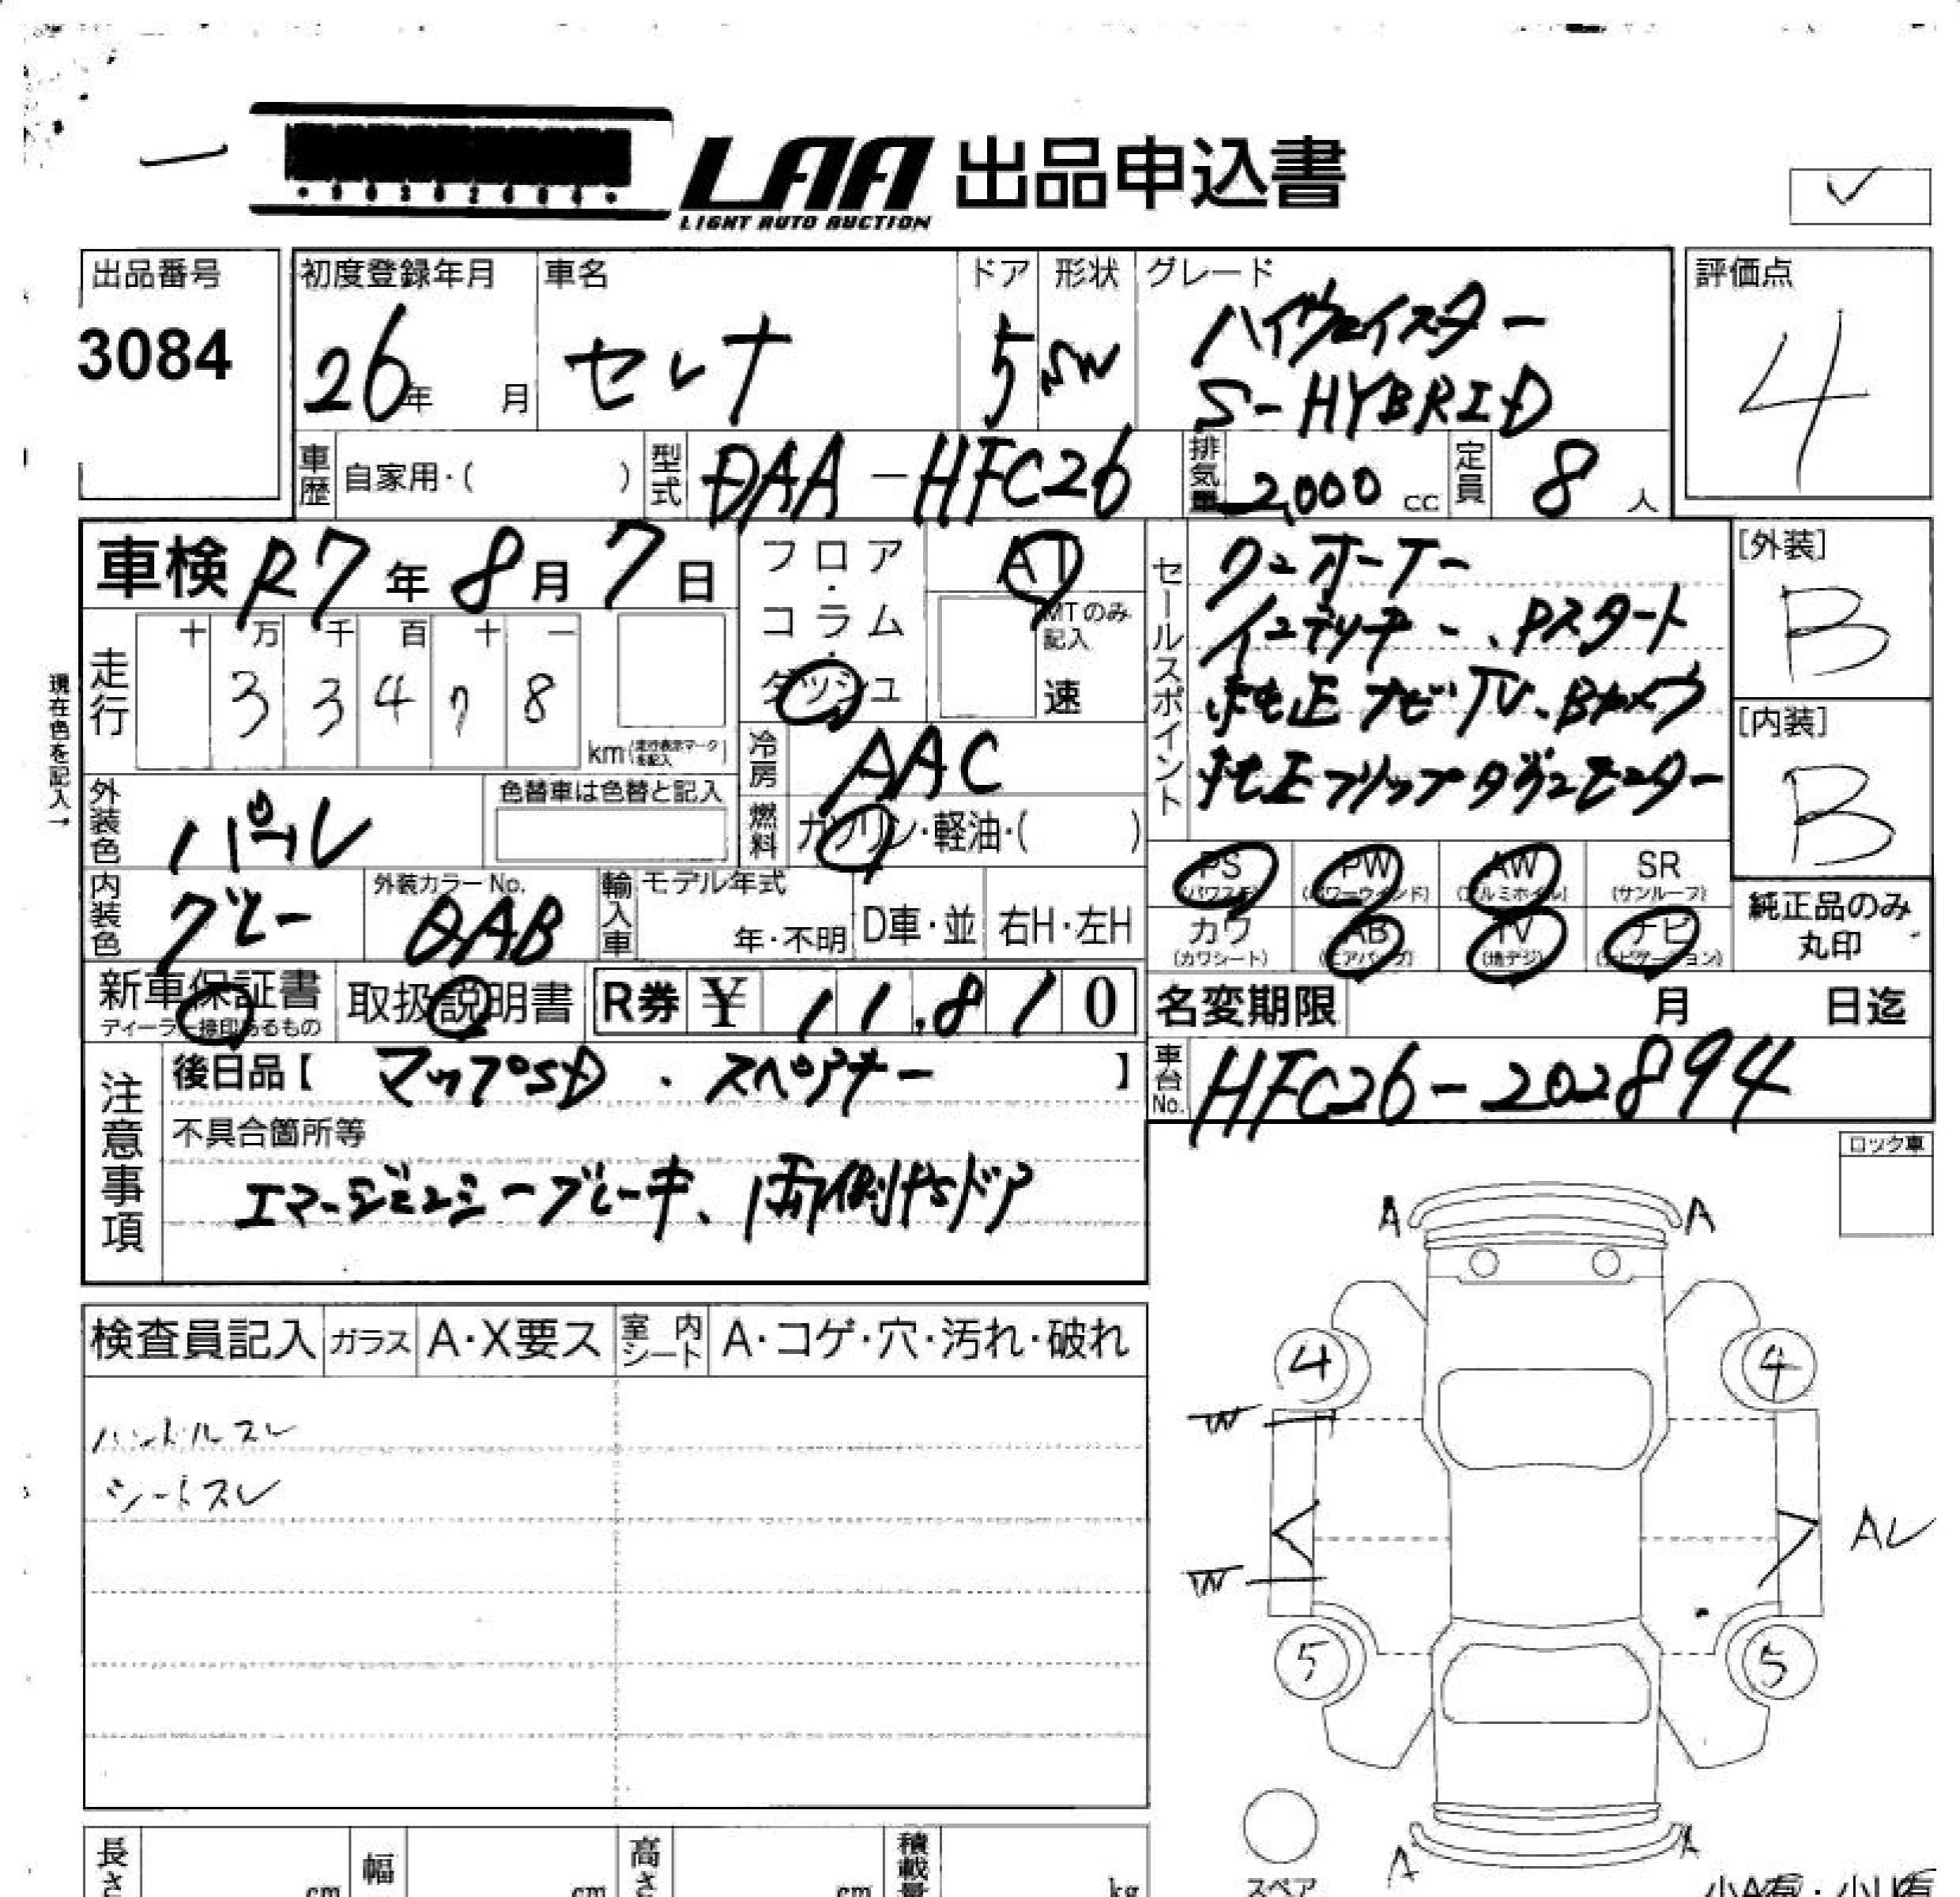 LAA 出品申込書
LIGHT AUTO AUCTION
✓
出品番号 初度登録年月 車名 ドア 形状 グレード 評価点
3084 26年 月 セレナ 5 SW ハイウェイスター 4
S-HYBRID
車歴 自家用・( ) 型式 DAA-HFC26 排気量 2,000 cc 定員 8 人
車検 R7年 8月 7日 フロア・コラム・ダッシュ AT
MTのみ記入 速
セールスポイント
ワンオーナー
インテリキー、Pスタート
純正ナビTV、Bカメラ
純正フリップダウンモニター
[外装] B
[内装] B
現在色を記入→
走行 十 万 千 百 十 一
3 3 4 7 8
km(走行表示マークを記入)
冷房 AAC
外装色 パール 色替車は色替と記入
燃料 ガソリン・軽油・( )
PS (パワステ) PW (パワーウインド) AW (アルミホイル) SR (サンルーフ)
内装色 グレー 外装カラーNo. QAB 輸入車 モデル年式 年・不明 D車・並 右H・左H
カワ (カワシート) AB (エアバッグ) TV (地デジ) ナビ (ナビゲーション)
純正品のみ丸印
新車保証書 ディーラー捺印あるもの 取扱説明書 R券 ¥ 11,810
名変期限 月 日迄
注意事項 後日品【 マップSD ・ スペアキー 】
車台No. HFC26-202894
不具合箇所等
エマージェンシーブレーキ、両側PSドア
ロック車
A A
検査員記入 ガラス A・X要ス 室内シート A・コゲ・穴・汚れ・破れ
4 4
ハンドルスレ
W
シートスレ
AU
W
5 5
A X
スペア
長さ cm 幅 cm 高さ cm 積載量 kg
小A有・小U有